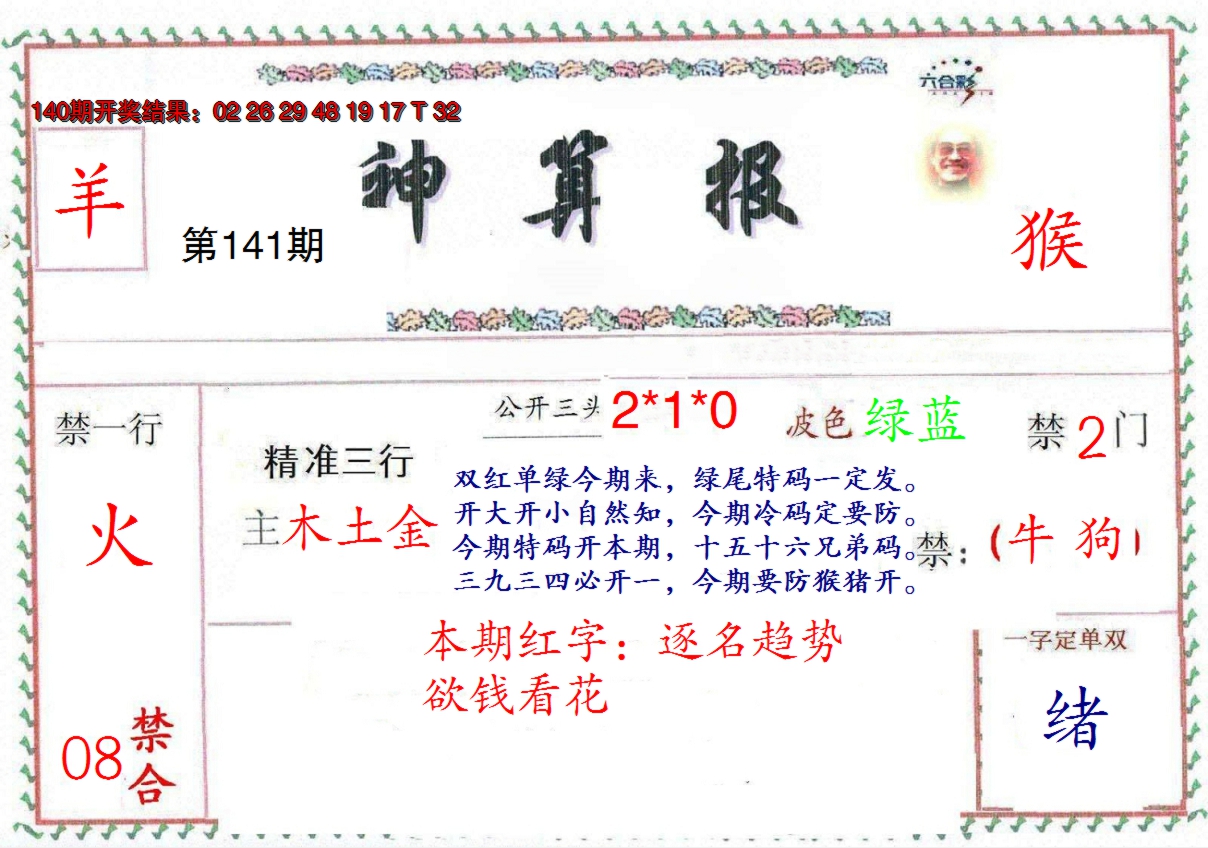 六合彩
140期开奖结果：02 26 29 48 19 17 T 32
神算报
羊
第141期
猴
公开三头 2*1*0
波色 绿蓝
禁一行
禁2门
精准三行
主木土金
火
双红单绿今期来，绿尾特码一定发。
开大开小自然知，今期冷码定要防。
今期特码开本期，十五十六兄弟码。
三九三四必开一，今期要防猴猪开。
禁：（牛 狗）
本期红字：逐名趋势
欲钱看花
一字定单双
绪
08
禁合